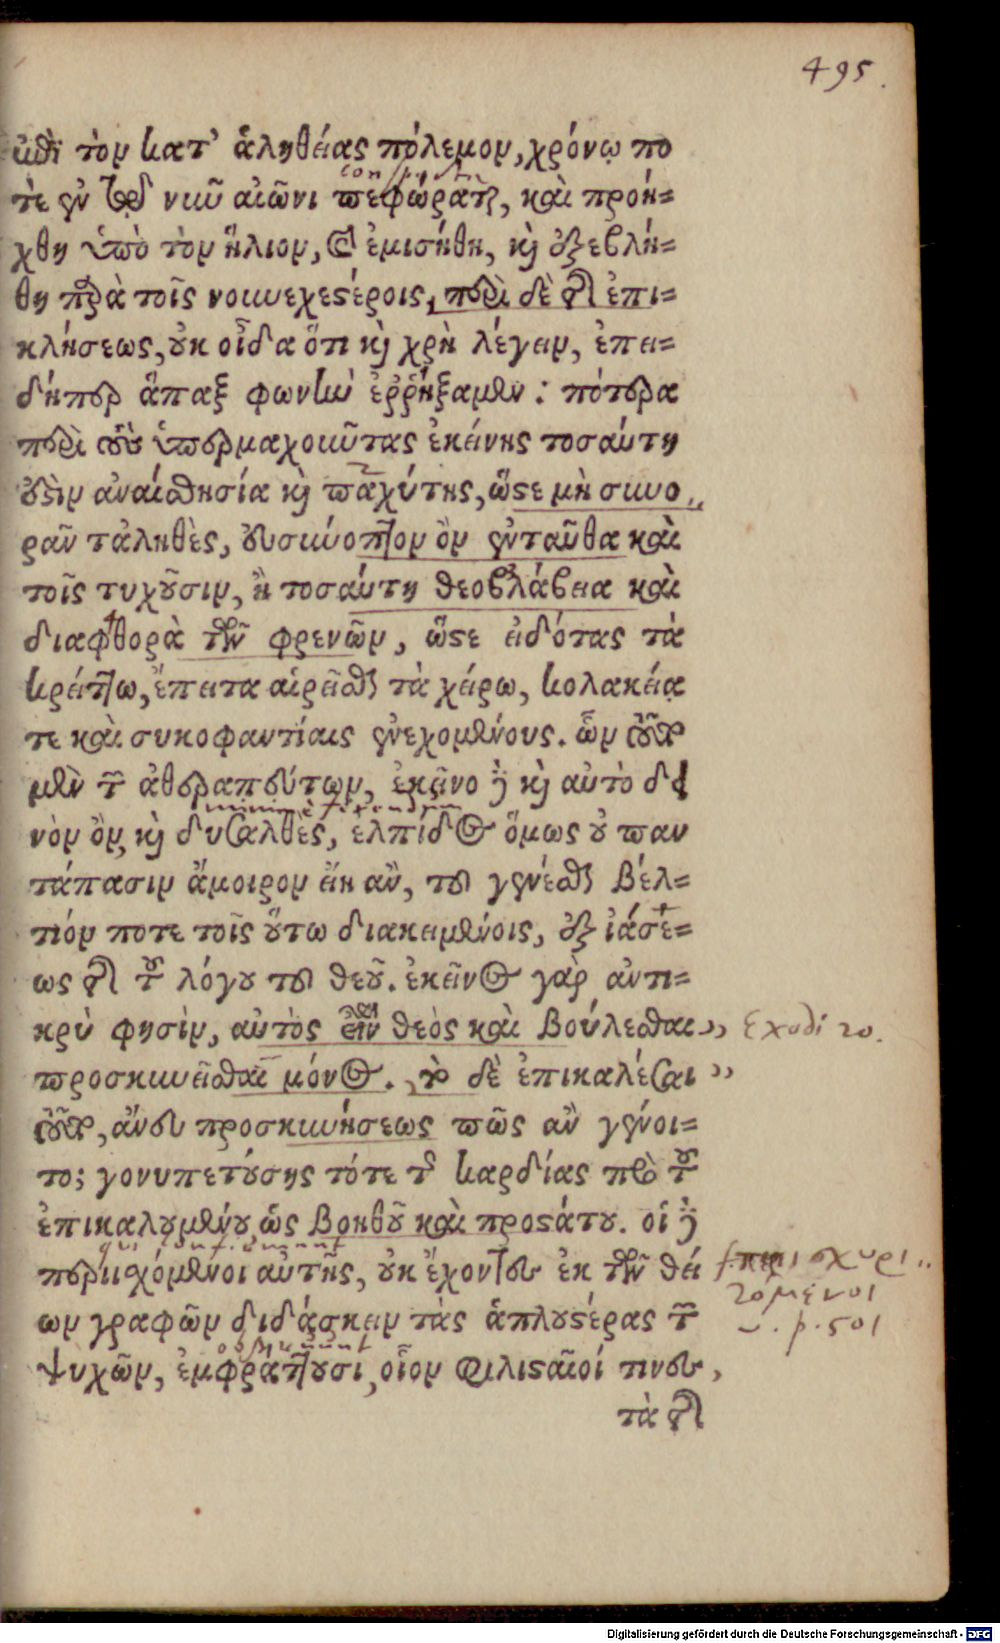 495.
ἐπὶ τὸν κατ' ἀληθείας πόλεμον, χρόνῳ πο
conspecta
τὲ ἐν τῷδε νιῦ αἰῶνι πεφώραται, καὶ προή-
χθη ὑπὸ τὸν ἥλιον, καὶ ἐμισήθη, καὶ ἐξεβλή-
θη παρὰ τοῖς νουνεχεστέροις, περὶ δὲ τῆς ἐπι-
κλήσεως, οὐκ οἶδα ὅτι καὶ χρὴ λέγειν, ἐπει-
δήπερ ἅπαξ φωνὴν ἐρρήξαμεν: πότερα
περὶ τοὺς ὑπερμαχοῦντας ἐκείνης τοσαύτη
ἐστὶν ἀναισθησία καὶ παχύτης, ὥστε μὴ συνο,,
ρᾶν τἀληθὲς, εὐσύνοπτον ὂν ἐνταῦθα καὶ
τοῖς τυχοῦσιν, ἢ τοσαύτη θεοβλάβεια καὶ
διαφθορὰ τῶν φρενῶν, ὥστε εἰδότας τὰ
κρείττω, ἔπειτα αἱρεῖσθαι τὰ χείρω, κολακείᾳ
τε καὶ συκοφαντίαις ἐνεχομένους. ὧν τοῦτο
μὲν τῶν ἀθεραπεύτων, ἐκεῖνο δὲ καὶ αὐτὸ δει
νὸν ὂν, καὶ δυσαλθὲς, ἐλπίδος ὅμως οὐ παν
τάπασιν ἄμοιρον εἴη ἂν, τοῦ γενέσθαι βέλ-
τιόν ποτε τοῖς οὕτω διακειμένοις, ἐξ ἰάσε-
ως τῆς τοῦ λόγου τοῦ θεοῦ. ἐκεῖνος γὰρ ἀντι-
κρὺ φησὶν, αὐτὸς εἶναι θεὸς καὶ βούλεσθαι ,, Exodi 20.
προσκυνεῖσθαι μόνος. τὸ δὲ ἐπικαλέσαι ,,
τοῦτο, ἄνευ προσκυνήσεως πῶς ἂν γένοι-
το; γονυπετούσης τότε τῆς καρδίας πρὸ τοῦ
ἐπικαλουμένου, ὡς βοηθοῦ καὶ προστάτου. οἱ δὲ
περιισχόμενοι αὐτῆς, οὐκ ἔχοντες ἐκ τῶν θεί
ων γραφῶν διδάσκειν τὰς ἁπλουστέρας τῶν
v. p. 501
obstruunt
ψυχῶν, ἐμφράττουσι, οἷον Φιλισταῖοί τινες,
τὰ τῆς
Digitalisierung gefördert durch die Deutsche Forschungsgemeinschaft - DFG